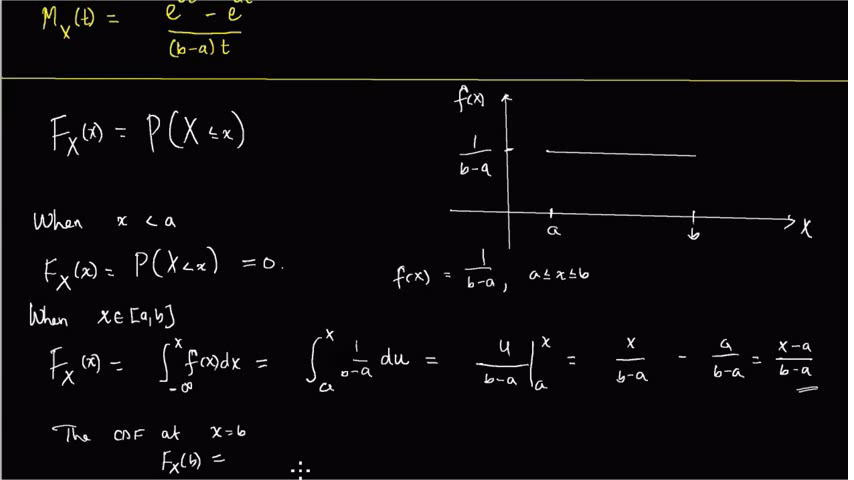 M_X(t) = e - e / (b-a)t
F_X(x) = P(X ≤ x)
f(x)
1/(b-a)
a b X
When x < a
F_X(x) = P(X < x) = 0.
f(x) = 1/(b-a), a ≤ x ≤ b
When x ∈ [a,b]
F_X(x) = ∫_{-∞}^{x} f(x)dx = ∫_a^x 1/(b-a) du = u/(b-a) |_a^x = x/(b-a) - a/(b-a) = (x-a)/(b-a)
The CDF at x=b
F_X(b) =